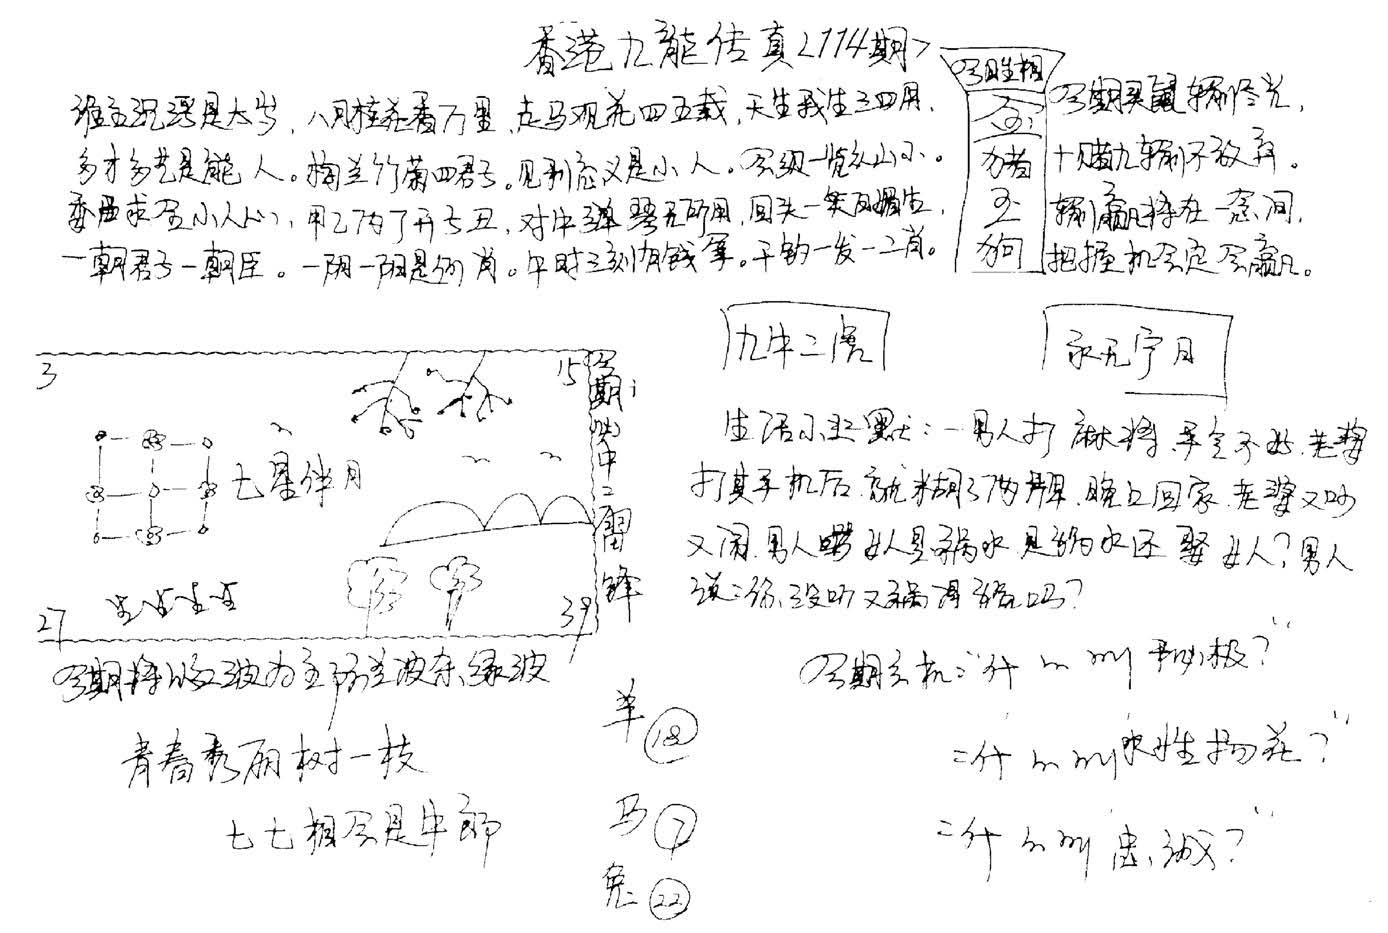 香港九龙传真<114期>
谁主沉浮是太岁，八月桂花香万里，走马观花四五载，天生我生三四用，
多才多艺是能人。梅兰竹菊四君子。见利忘义是小人。会级一览众山小。
委曲求全小人心，甲乙丙丁开七丑，对牛弹琴无所用，回头一笑百媚生，
一朝君子一朝臣。一阴一阳是何肖。午时三刻有钱拿。千钧一发一二肖。
今日生肖
鸡
猪
玉
狗
今期买 输 光，
十赌九输不放弃。
输赢将在一念间，
把握机会定会赢。
九牛二虎
永无宁日
3
15
七星伴月
27
39
今期 中二雷锋
生活小幽默：一男人打麻将，手气不好，老婆
打其手机后，就糊了两牌，晚上回家，老婆又吵
又闹，男人 女人是祸水，是祸水还娶女人？男人
说：你没听 祸得 吗？
今期将以红波为主防兰波杂绿波
青春秀丽树一枝
七七相会是牛郎
羊 18
马 7
兔 22
今期玄机："什么叫 极？"
"什么叫水性扬花？"
"什么叫忠诚？"